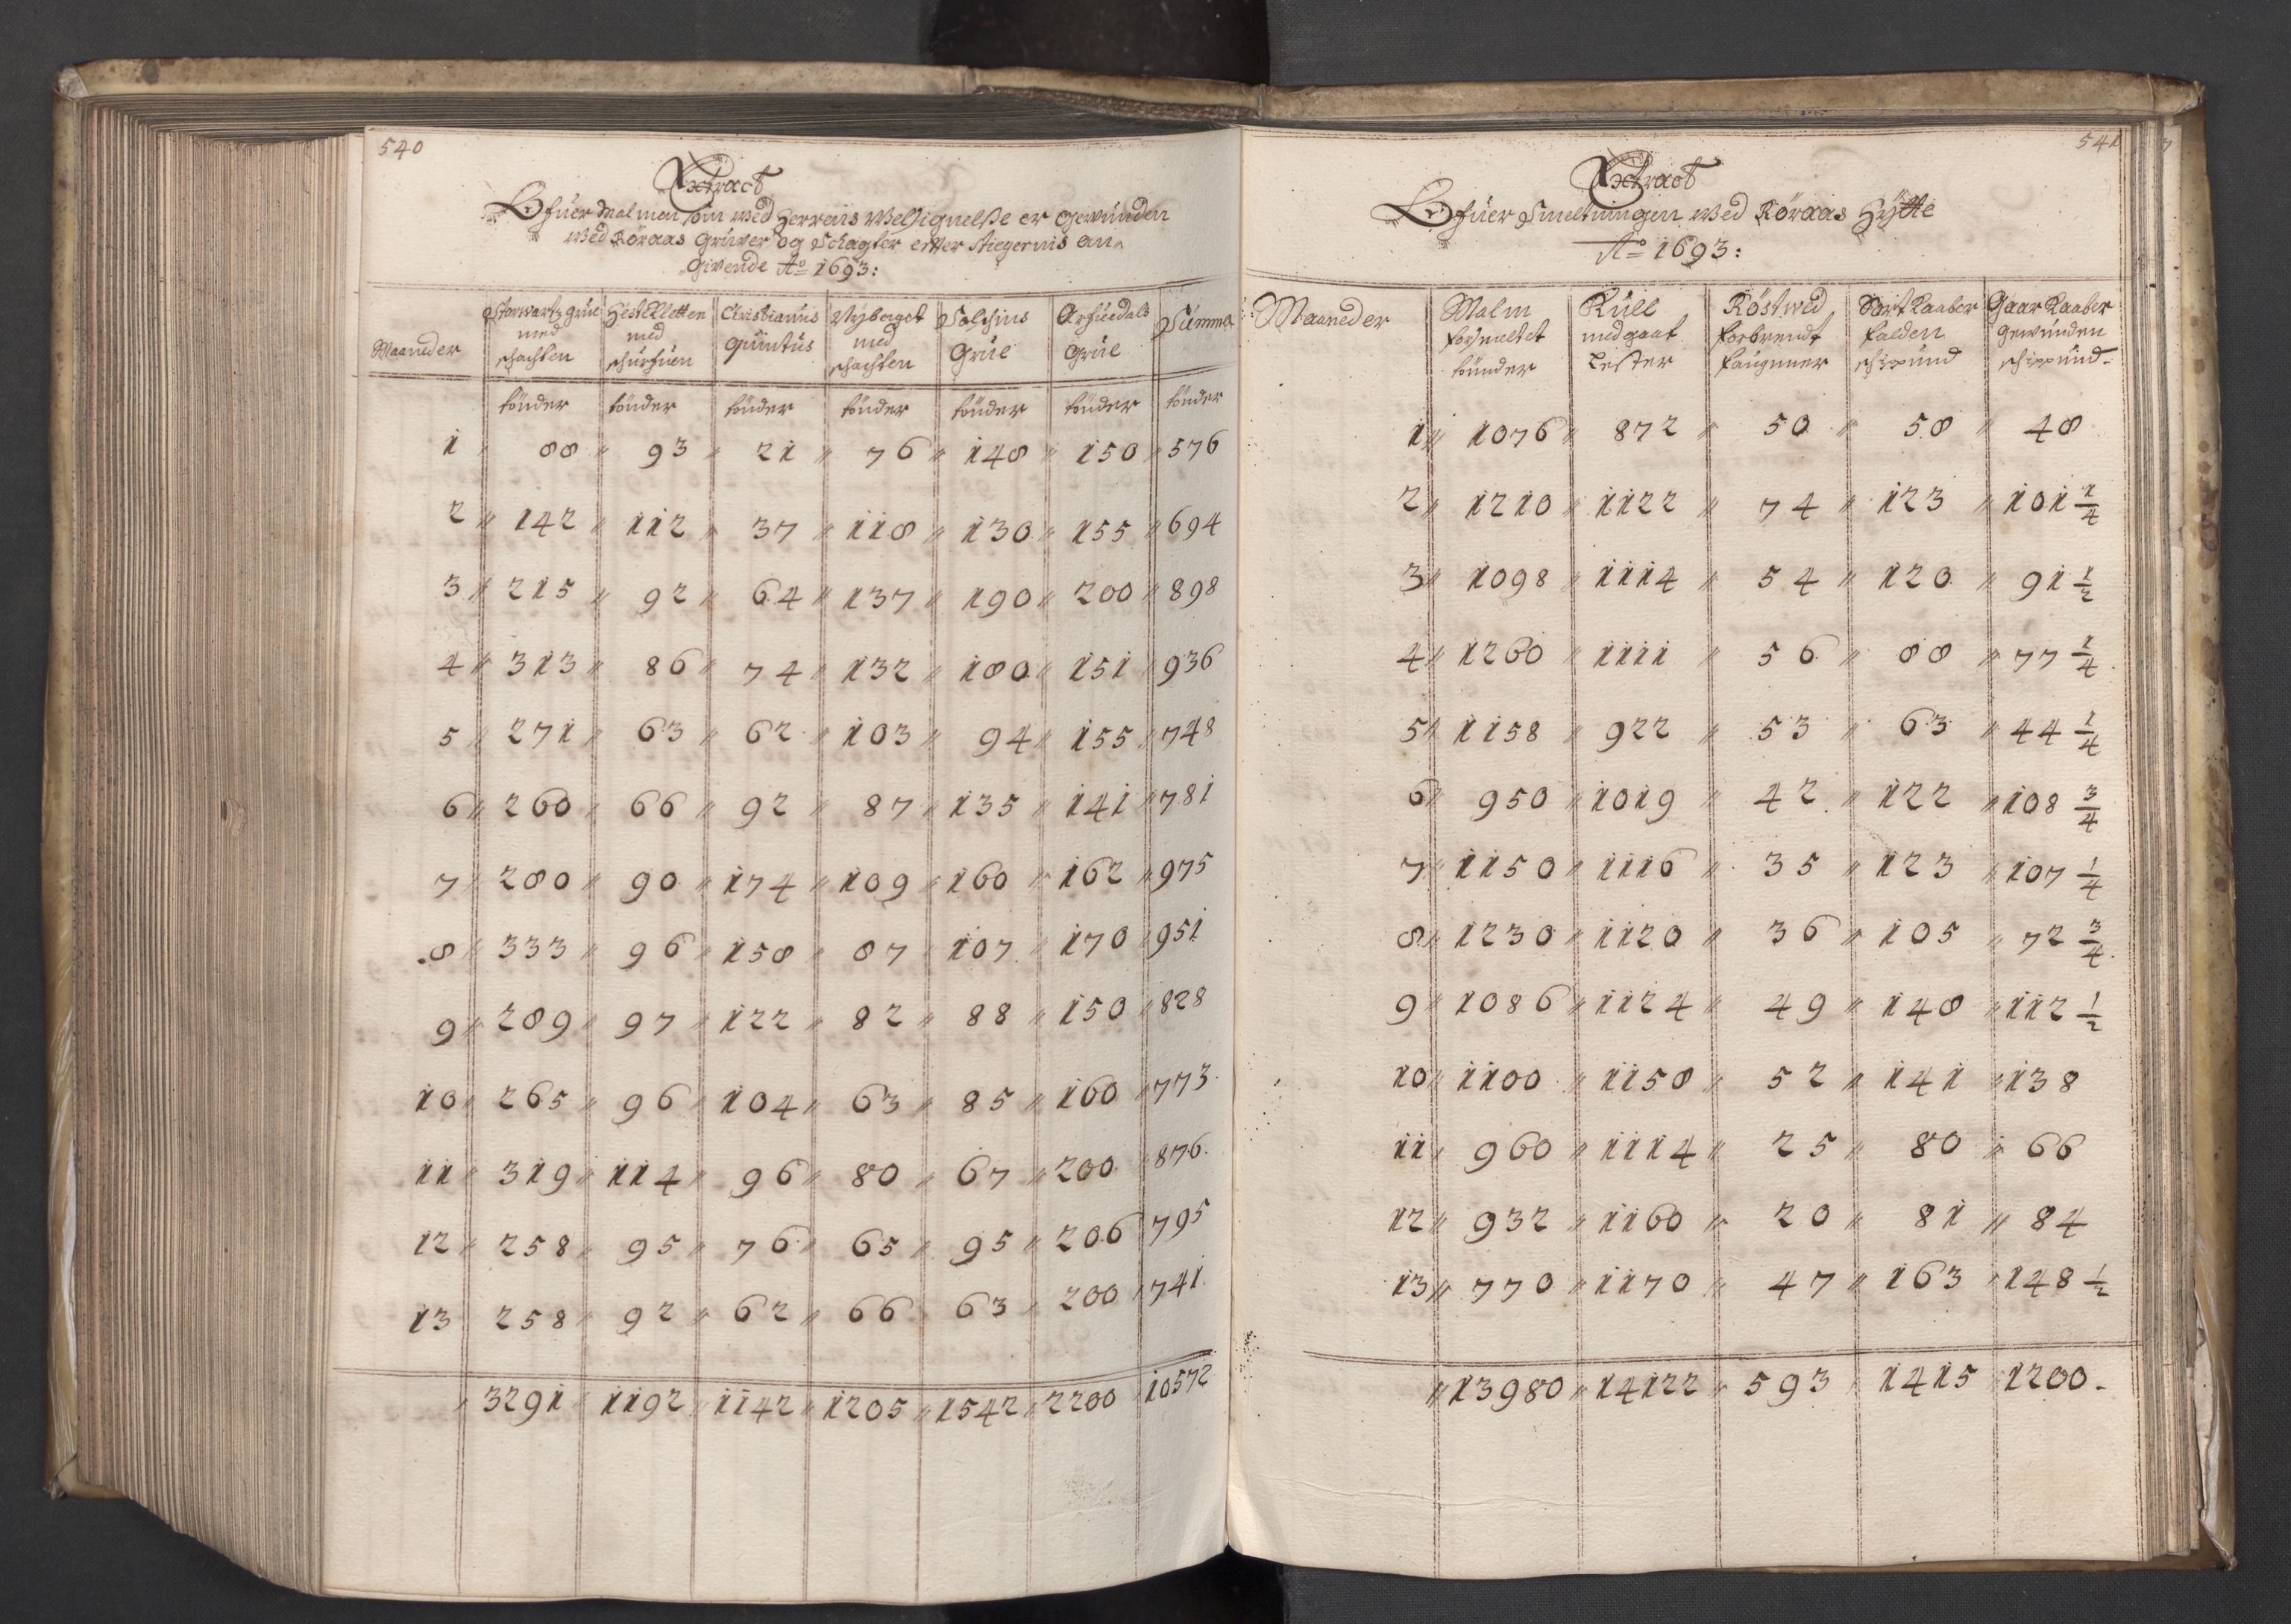 540
Extract
Ofuer Malmen som wed Herrens Welsignelsse er gewunden
wed Röraas Gruwer og Schagter efter stiegernis an-
givende Ao 1693:
Maaneder Storwartz grue med schachten Hestkletten med schurfuen Christianus Quintus Nÿberget med schachten Solskins Grue Arfuedals Grue Summa
tönder tönder tönder tönder tönder tönder tönder
1 88 93 21 76 148 150 576
2 142 112 37 118 130 155 694
3 215 92 64 137 190 200 898
4 313 86 74 132 180 151 936
5 271 63 62 103 94 155 748
6 260 66 92 87 135 141 781
7 280 90 174 109 160 162 975
8 333 96 158 87 107 170 951
9 289 97 122 82 88 150 828
10 265 96 104 63 85 160 773
11 319 114 96 80 67 200 876
12 258 95 76 65 95 206 795
13 258 92 62 66 63 200 741
3291 1192 1142 1205 1542 2200 10572
541
Extract
Ofuer Smeltningen wed Röraas Hÿtte
Ao 1693:
Maaneder Malm forsmeltet tönder Kull medgaat Lester Röstwed forbrendt faugnner Sort Kaaber falden schippund Gaar Kaaber gewunden schippund
1 1076 872 50 58 48
2 1210 1122 74 123 101 1/4
3 1098 1114 54 120 91 1/2
4 1260 1111 56 88 77 1/4
5 1158 922 53 63 44 1/4
6 950 1019 42 122 108 3/4
7 1150 1116 35 123 107 1/4
8 1230 1120 36 105 72 3/4
9 1086 1124 49 148 112 1/2
10 1100 1158 52 141 138
11 960 1114 25 80 66
12 932 1160 20 81 84
13 770 1170 47 163 148 1/2
13980 14122 593 1415 1200